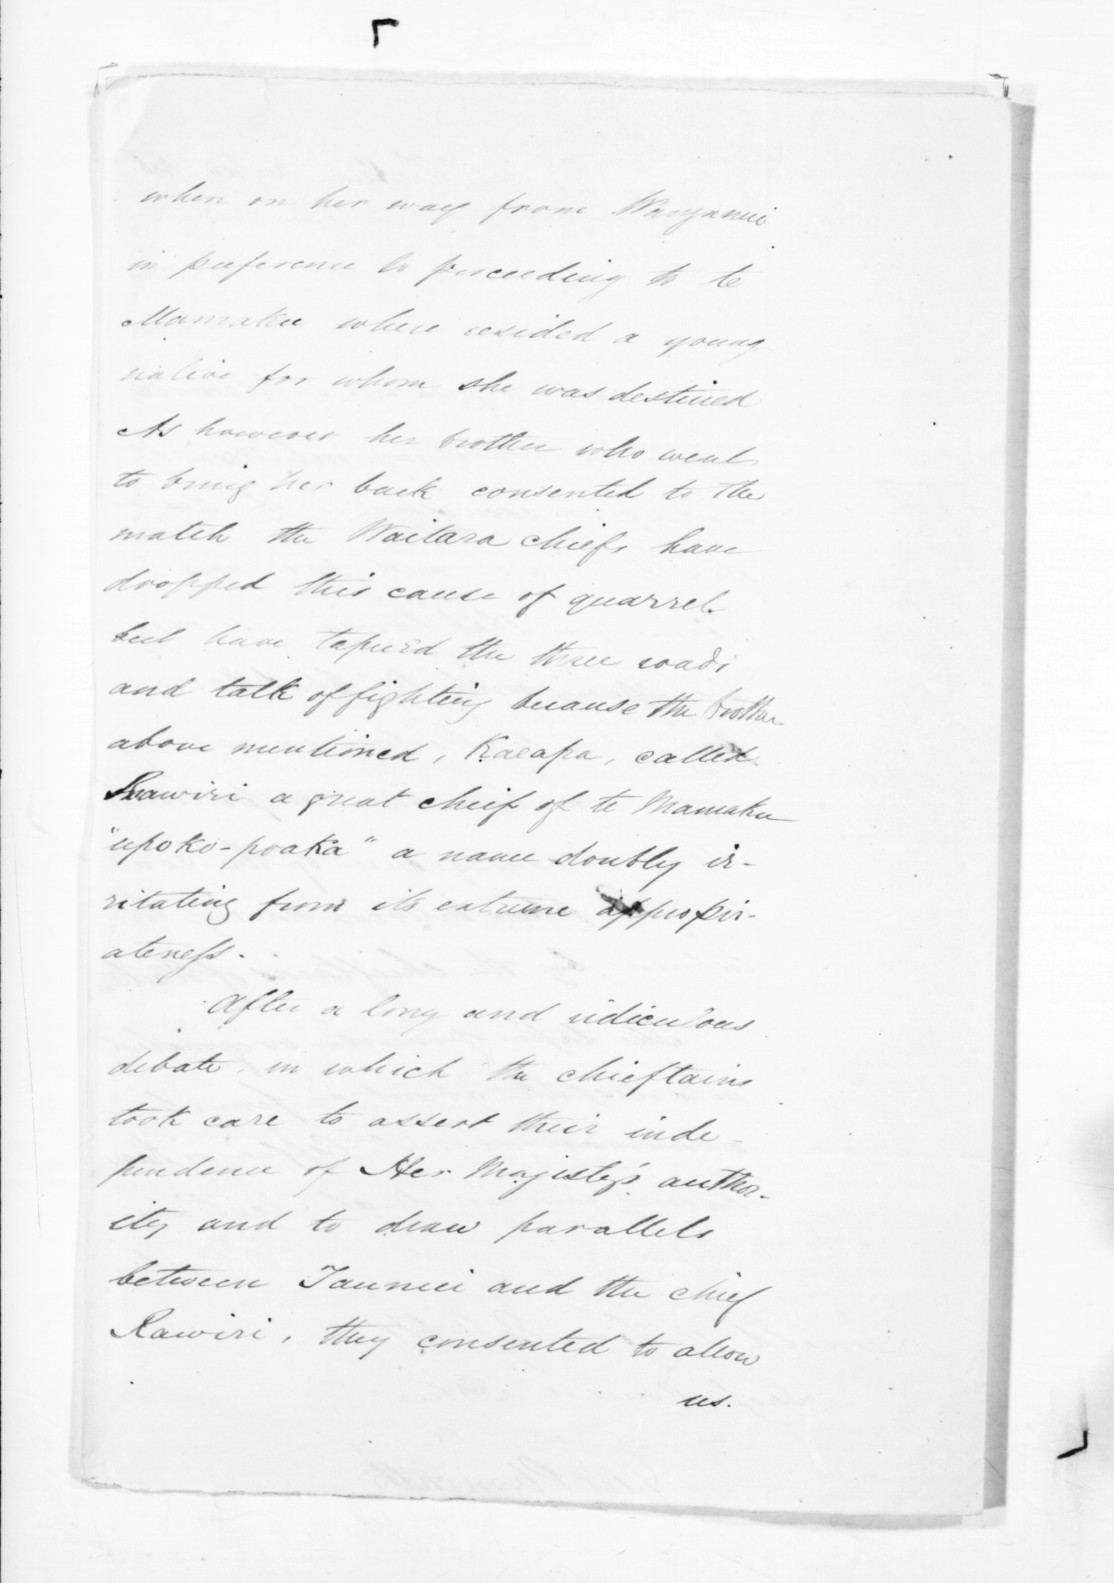 when on her way from Wanganui
in preference to proceeding to te
Mamaku where resided a young
native for whom she was destined
As however her brother who went
to bring her back consented to the
match the Waitara chiefs have
dropped this cause of quarrel
but have tapu'd the three roads
and talk of fighting because the brother
above mentioned, called
Rawiri a great chief of te Mamaku
"upoko-poaka" a name doubly ir-
ritating from its extreme appropri-
ateness.
After a long and ridiculous
debate in which the chieftains
took care to assert their inde-
pendence of Her Majisty's author-
ity and to draw parallels
between and the chief
Rawiri, they consented to allow
us.